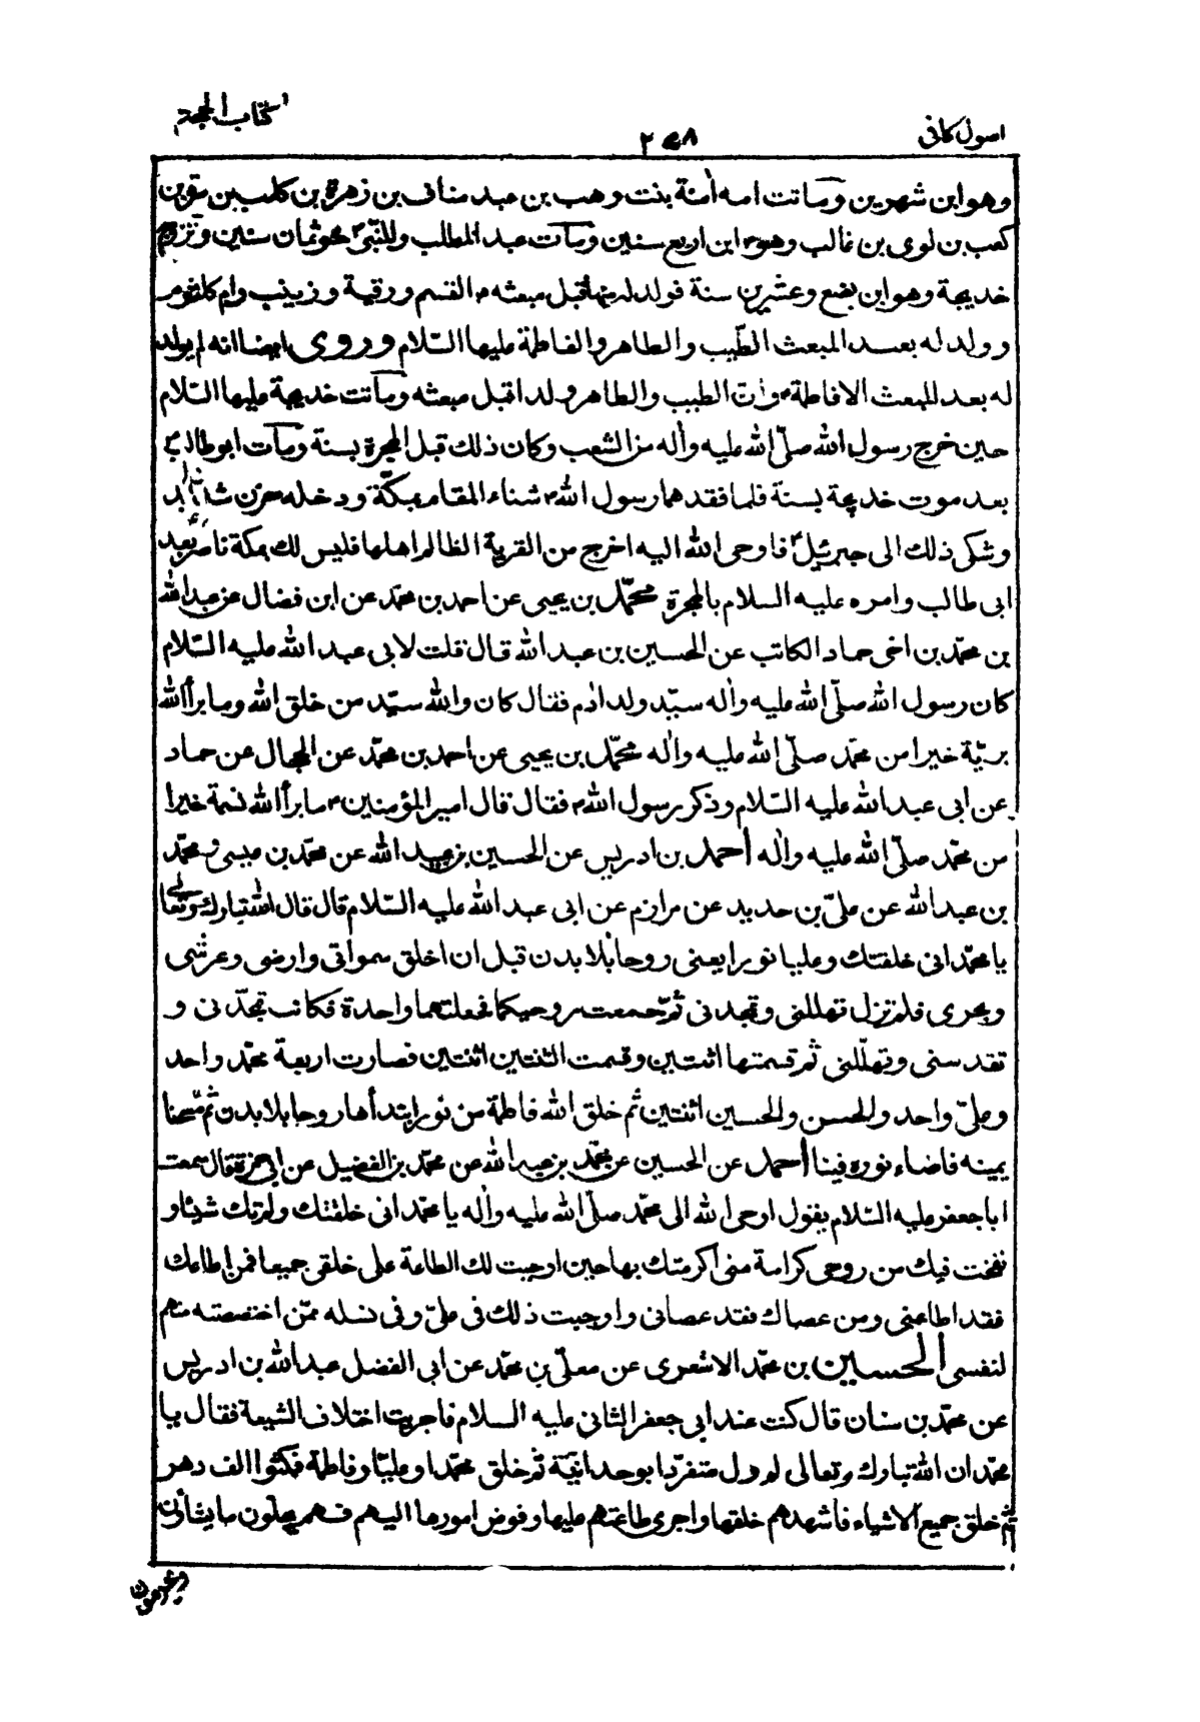 كتاب الحجة
اصول كافى
٢٥٨
وهو ابن شهرين وماتت امه اٰمنة بنت وهب بن عبد مناف بن زهرة بن كلاب بن مرة بن
كعب بن لوى بن غالب وهو ابن اربع سنين ومات عبد المطلب وللنبىّ نحو ثمان سنين وتزوج
خديجة وهو ابن بضع وعشرين سنة فولد له منها قبل مبعثه القسم ورقية وزينب وام كلثوم
وولد له بعد المبعث الطّيب والطاهر والفاطمة عليها السّلام وروى ايضا انه لم يولد
له بعد المبعث الا فاطمة وان الطيب والطاهر ولدا قبل مبعثه وماتت خديجة عليها السّلام
حين خرج رسول الله صلّى الله عليه واٰله من الشعب وكان ذلك قبل الهجرة بسنة ومات ابو طالب
بعد موت خديجة بسنة فلما فقدهما رسول الله شناء المقام بمكّة ودخله حزن شديد
وشكى ذلك الى جبرئيل فاوحى الله اليه اخرج من القرية الظالم اهلها فليس لك بمكة ناصر بعد
ابى طالب وامره عليه السلام بالهجرة محمّد بن يحيى عن احمد بن محمّد عن ابن فضال عن عبد الله
بن محمّد بن اخى حماد الكاتب عن الحسين بن عبد الله قال قلت لابى عبد الله عليه السّلام
كان رسول الله صلّى الله عليه واٰله سيّد ولد اٰدم فقال كان والله سيّد من خلق الله وما برأ الله
بريّة خيرا من محمّد صلّى الله عليه واٰله محمّد بن يحيى عن احمد بن محمّد عن الحجال عن حماد
عن ابى عبد الله عليه السّلام وذكر رسول الله فقال قال امير المؤمنين ما برأ الله نسمة خيرا
من محمّد صلّى الله عليه واٰله أحمد بن ادريس عن الحسين بن عبيد الله عن محمّد بن عيسى ومحمّد
بن عبد الله عن علىّ بن حديد عن مرازم عن ابى عبد الله عليه السّلام قال قال الله تبارك وتعالى
يا محمّد انى خلقتك وعليا نورا يعنى روحا بلا بدن قبل ان اخلق سمواتى وارضى وعرشى
وبحرى فلم تزل تهللنى وتمجدنى ثمّ جمعت روحيكما فجعلتهما واحدة فكانت تمجّدنى و
تقدسنى وتهلّلنى ثم قسمتها اثنتين وقسمت الثنتين اثنتين فصارت اربعة محمّد واحد
وعلىّ واحد والحسن والحسين اثنتين ثم خلق الله فاطمة من نور ابتدأها روحا بلا بدن ثم مسحنا
يمينه فاضاء نوره فينا أحمد عن الحسين عن محمّد بن عبد الله عن محمّد بن الفضيل عن ابى حمزة قال سمعت
ابا جعفر عليه السّلام يقول اوحى الله الى محمّد صلّى الله عليه واٰله يا محمّد انى خلقتك ولم تك شيئا و
نفخت فيك من روحى كرامة منى اكرمتك بها حين اوجبت لك الطاعة على خلقى جميعا فمن اطاعك
فقد اطاعنى ومن عصاك فقد عصانى واوجبت ذلك فى علىّ وفى نسله ممّن اختصصته منهم
لنفسى ألحسين بن محمّد الاشعرى عن معلّى بن محمّد عن ابى الفضل عبد الله بن ادريس
عن محمّد بن سنان قال كنت عند ابى جعفر الثانى عليه السلام فاجريت اختلاف الشيعة فقال يا
محمّد ان الله تبارك وتعالى لم يزل متفرّدا بوحدانيّة ثم خلق محمّدا وعليّا وفاطمة فمكثوا الف دهر
ثم خلق جميع الاشياء فاشهدهم خلقها واجرى طاعتهم عليها وفوض امورها اليهم فهم يحلّون ما يشاؤن
ويحرمون